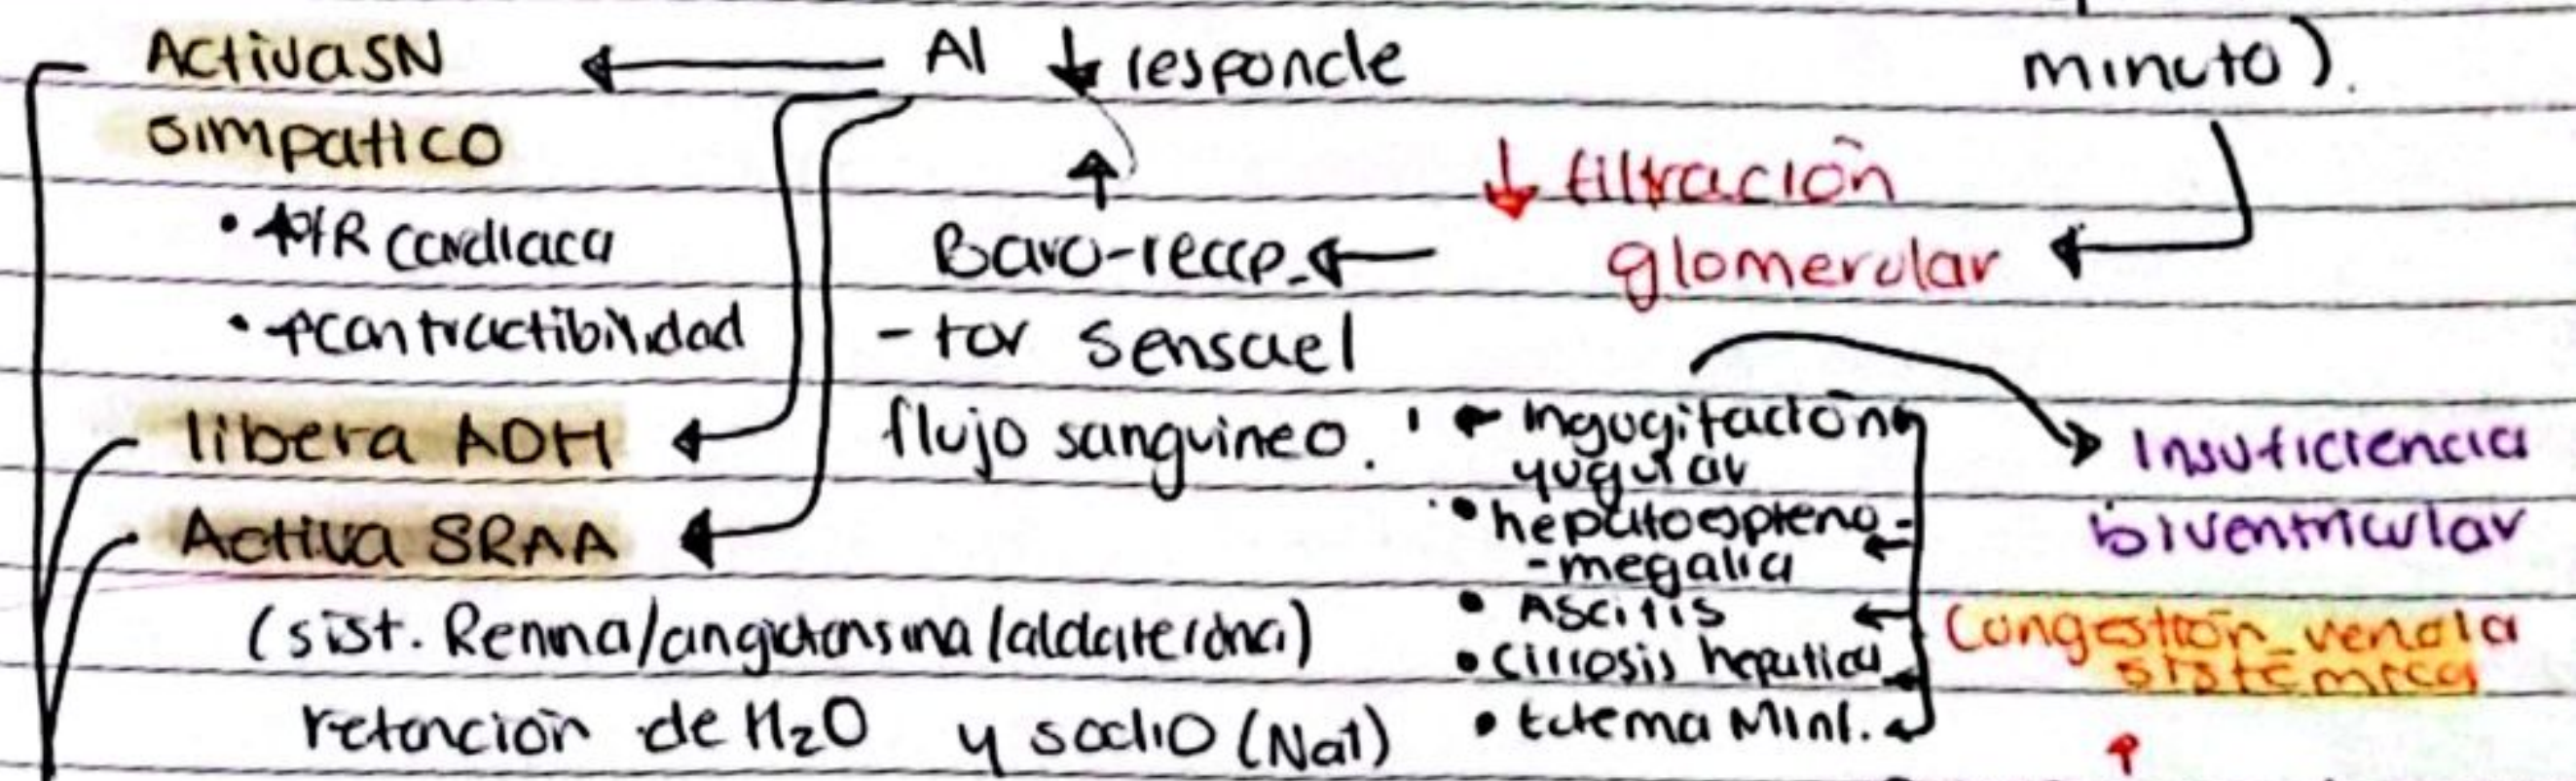 Activa SN
simpatico
• ↑FR cardiaca
• ↑contractibilidad
libera ADH
Activa SRAA
(sist. Renina/angiotensina/aldosterona)
retención de H2O y sodio (Na+)
Al ↓ responde
↑
Baro-recep-
-tor sensa el
flujo sanguineo.
minuto).
↓ filtración
glomerular
• Ingugitación
yugular
• hepatoespleno-
-megalia
• Ascitis
• Cirrosis hepatica
• Edema MInf.
Insuficiencia
biventricular
Congestión venola
sistémica
↑